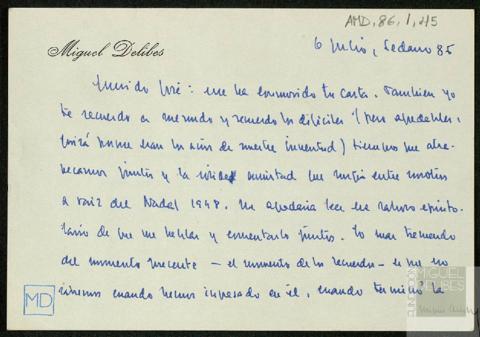 AMD, 86, 1, 45
Miguel Delibes
6 Julio, Sedano 85
Querido José: me ha conmovido tu carta. También yo
te recuerdo a menudo y recuerdo los difíciles (pero agradables,
quizá porque eran los años de nuestra juventud) tiempos que atra-
vesamos juntos y la sólida amistad que surgió entre nosotros
a raíz del Nadal 1948. Me agradaría leer ese sabroso episto-
lario de que me hablas y comentarlo juntos. Lo más tremendo
del momento presente – el momento de los recuerdos – es que no
vivimos cuando hemos ingresado en él, cuando terminó la
MD
FUNDACIÓN
MIGUEL
DELIBES